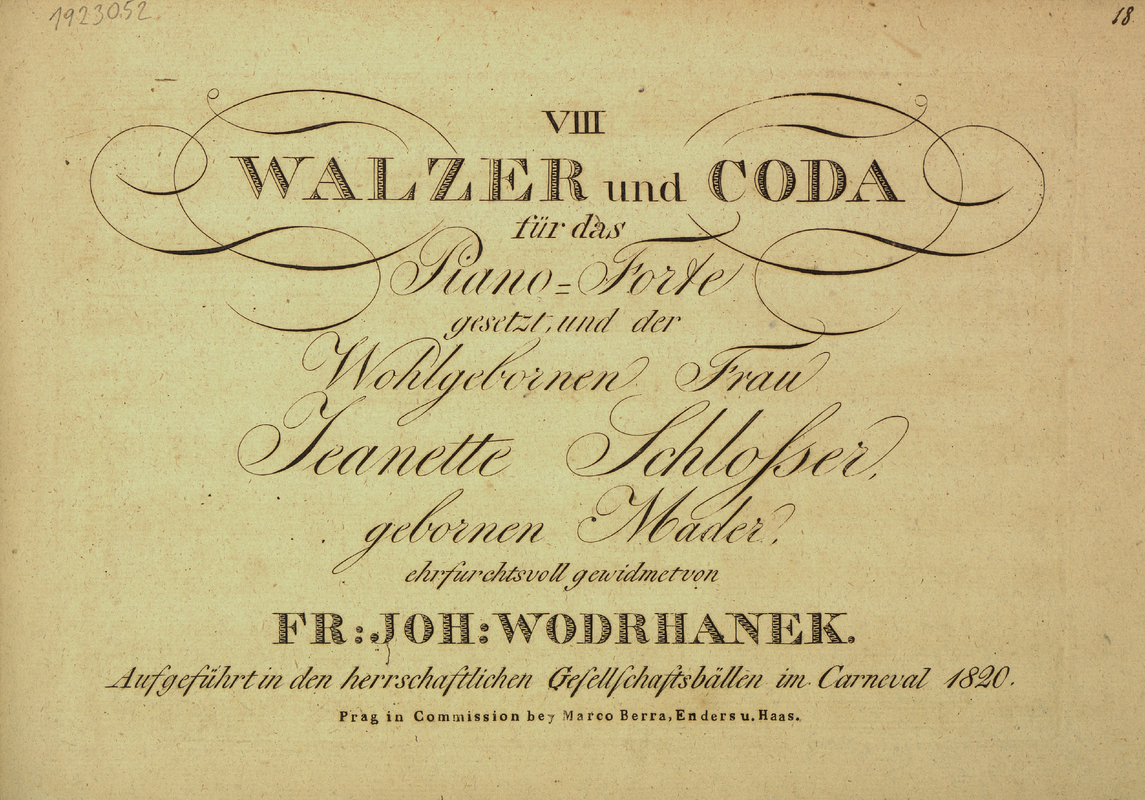 1923052
18
VIII
WALZER und CODA
für das
Piano=Forte
gesetzt, und der
Wohlgebornen Frau
Jeanette Schloſser,
gebornen Mader,
ehrfurchtsvoll gewidmet von
FR: JOH: WODRHANEK.
Aufgeführt in den herrschaftlichen Geſellſchaftsbällen im Carneval 1820.
Prag in Commission bey Marco Berra, Enders u. Haas.